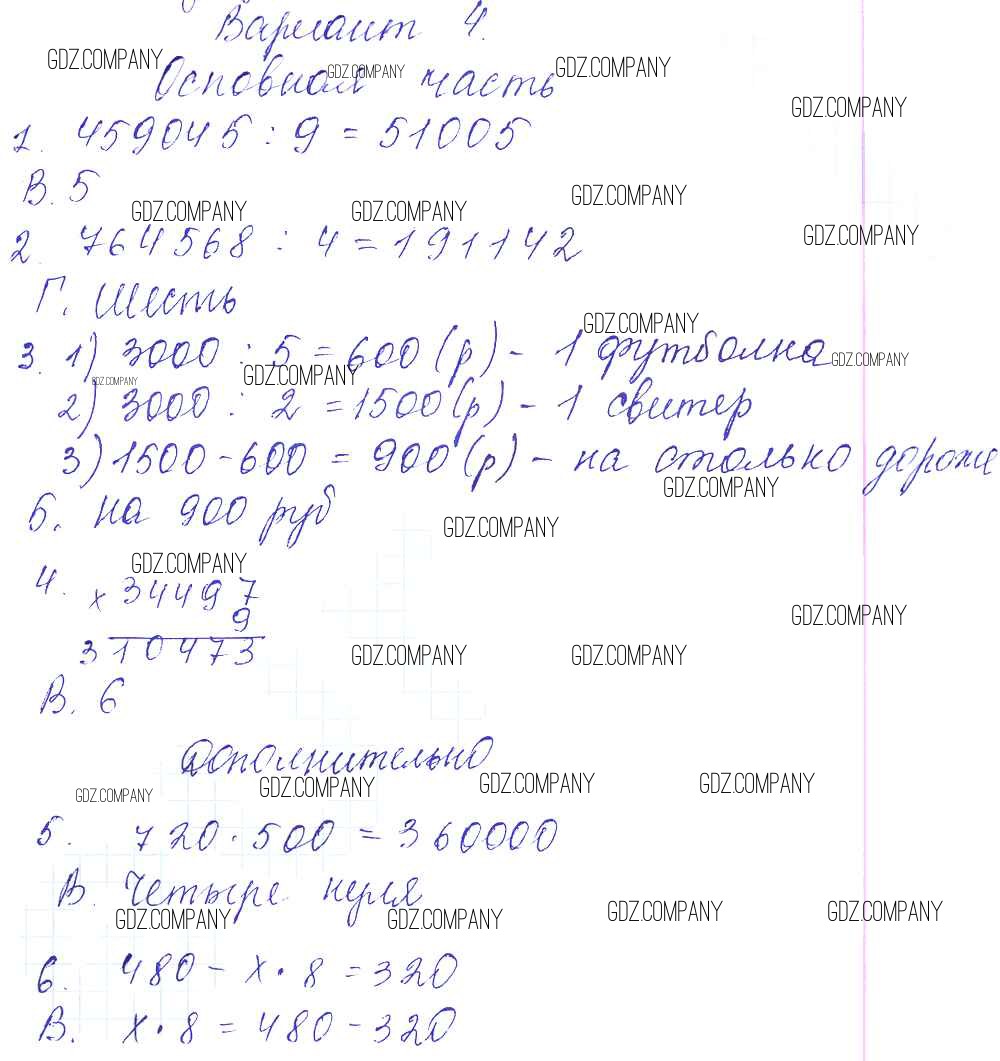 Вариант 4.
GDZ.COMPANY
Основная часть
GDZ.COMPANY GDZ.COMPANY
GDZ.COMPANY
1. 459045 : 9 = 51005
В. 5
GDZ.COMPANY GDZ.COMPANY GDZ.COMPANY
2. 764568 : 4 = 191142
GDZ.COMPANY
Г. Шесть
GDZ.COMPANY
3. 1) 3000 : 5 = 600 (р) - 1 футболка
GDZ.COMPANY
GDZ.COMPANY GDZ.COMPANY
2) 3000 : 2 = 1500 (р) - 1 свитер
3) 1500 - 600 = 900 (р) - на столько дороже
GDZ.COMPANY
Б. на 900 руб
GDZ.COMPANY
GDZ.COMPANY
4. х 34497
9
GDZ.COMPANY
310473
GDZ.COMPANY GDZ.COMPANY
В. 6
Дополнительно
GDZ.COMPANY GDZ.COMPANY GDZ.COMPANY GDZ.COMPANY
5. 720 · 500 = 360000
В. Четыре нуля
GDZ.COMPANY GDZ.COMPANY GDZ.COMPANY GDZ.COMPANY
6. 480 - х · 8 = 320
В. х · 8 = 480 - 320